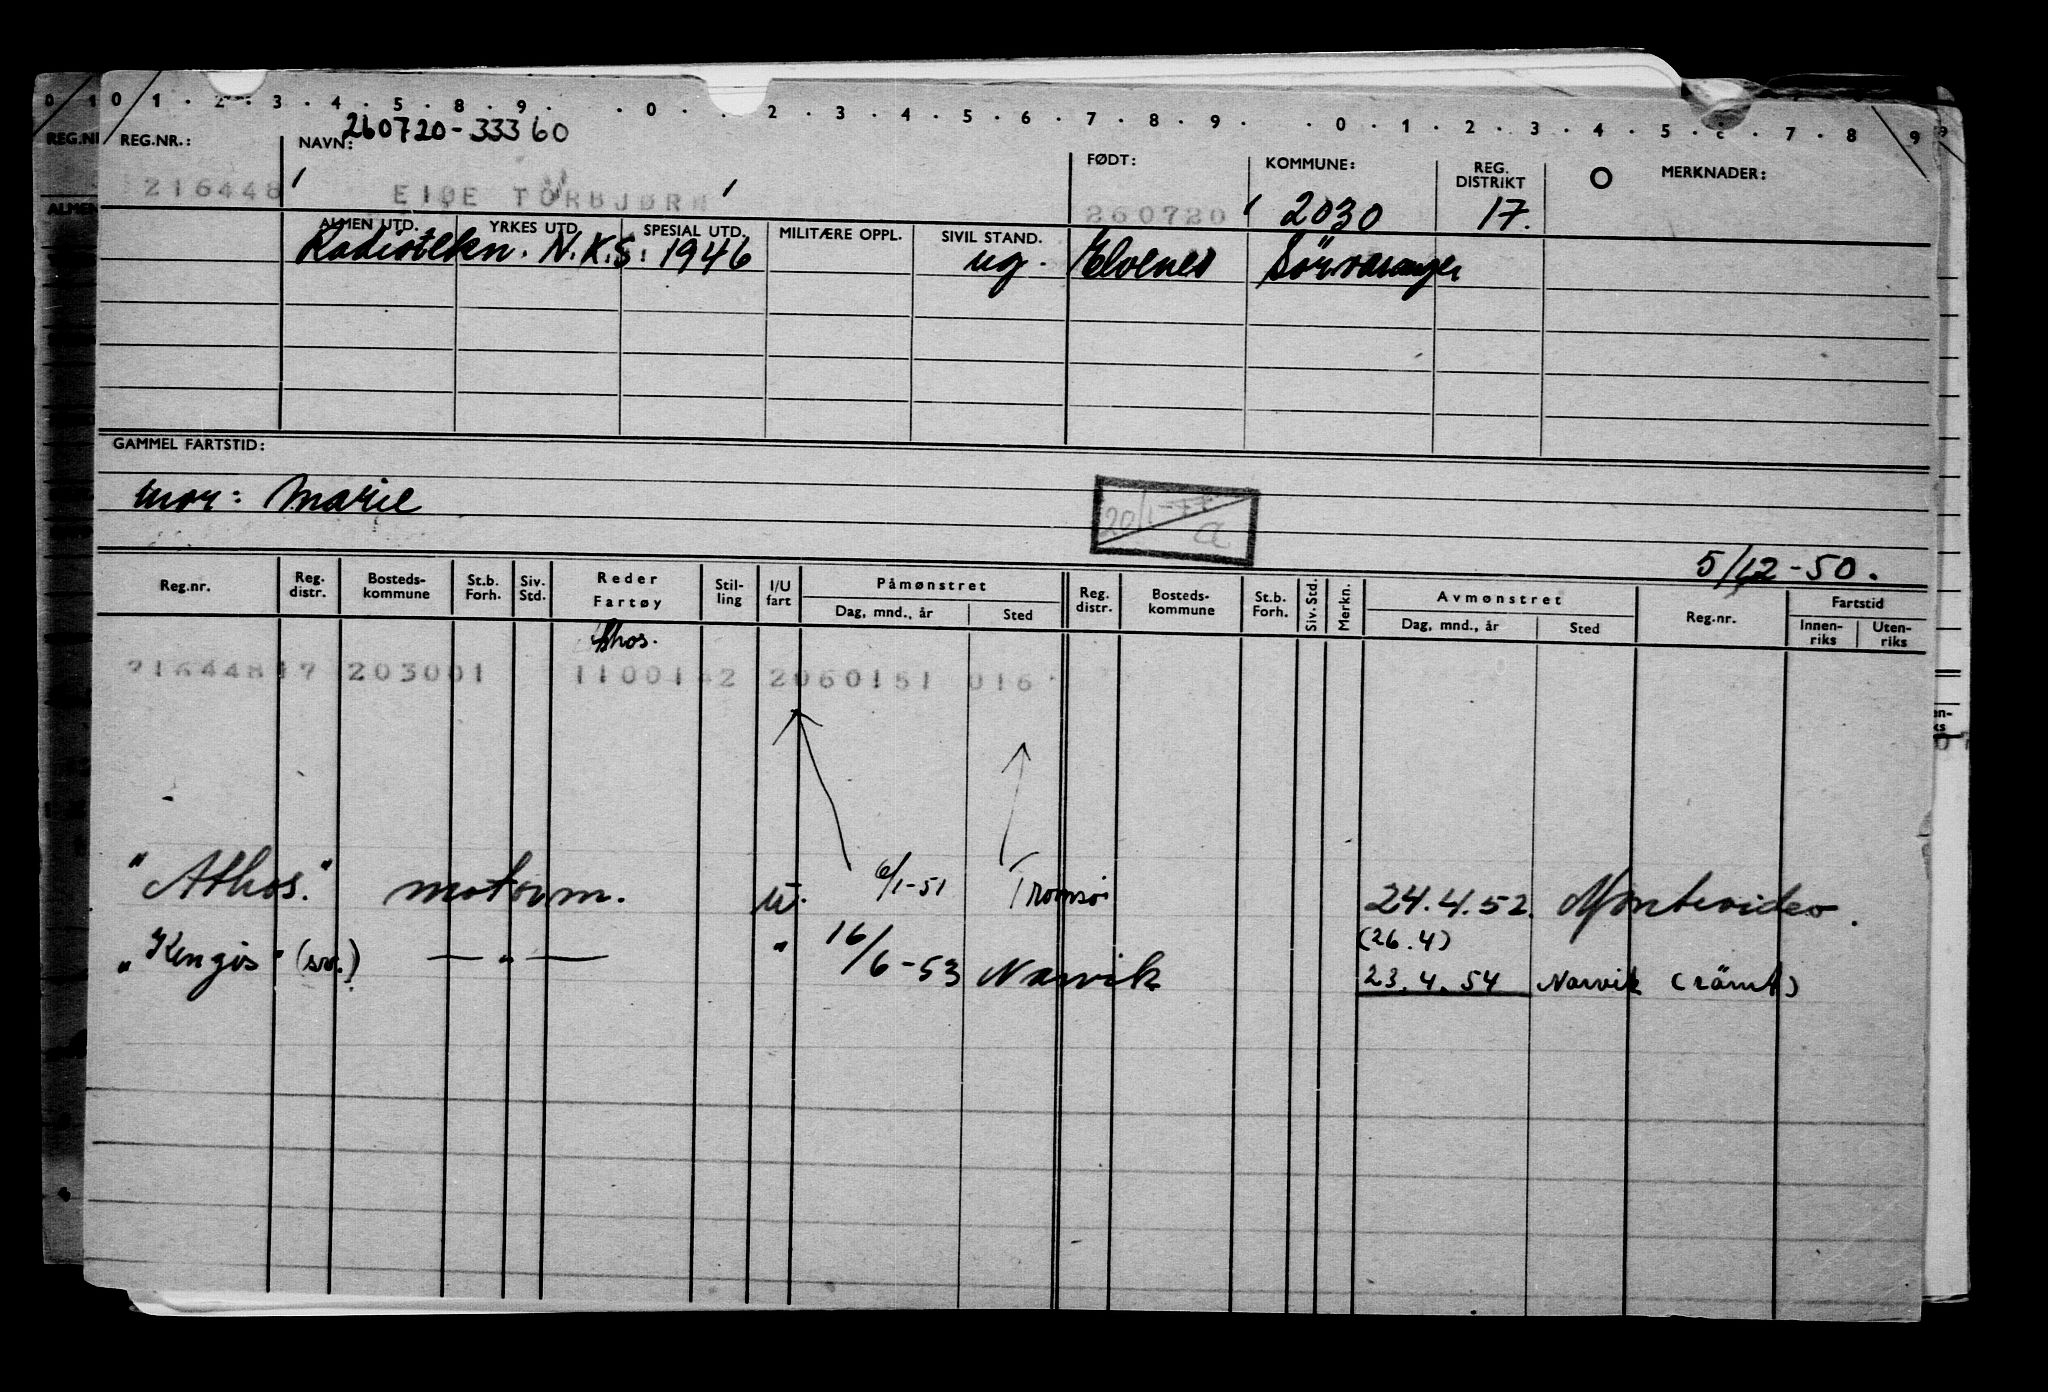 0 1 0 1 . 2 . 3 . 4 . 5 . 8 . 9 . . 0 . . 2 . 3 . 4 . 5 . 6 . 7 . 8 . 9 . . 0 . 1 . 2 . 3 . 4 . 5 . 7 . 8 9
260720-33360
REG.NR.: NAVN: FØDT: KOMMUNE: REG. DISTRIKT MERKNADER:
216448 EIDE TORBJØRN 260720 2030 17.
ALMEN UTD. YRKES UTD. SPESIAL UTD. MILITÆRE OPPL. SIVIL STAND.
Radiotekn. N.K.S. 1946 ug. Elvenes Sörvaranger
GAMMEL FARTSTID:
mor: Marie
20/1-77
a
5/12-50.
Reg.nr. Reg. distr. Bosteds- kommune St.b. Forh. Siv. Std. Reder Fartøy Stil- ling I/U fart Påmønstret Reg. distr. Bosteds- kommune St.b. Forh. Siv. Std. Merkn. Avmønstret Reg.nr. Fartstid
Dag, mnd., år Sted Dag, mnd., år Sted Innen- riks Uten- riks
Athos.
21644817 203001 1100142 2060151 016
"Athos." motorm. u. 6/1-51 Tromsö 24.4.52. Montevideo.
(26.4)
"Kengis" (sv.) — " — " 16/6-53 Narvik 23.4.54 Narvik (römt)